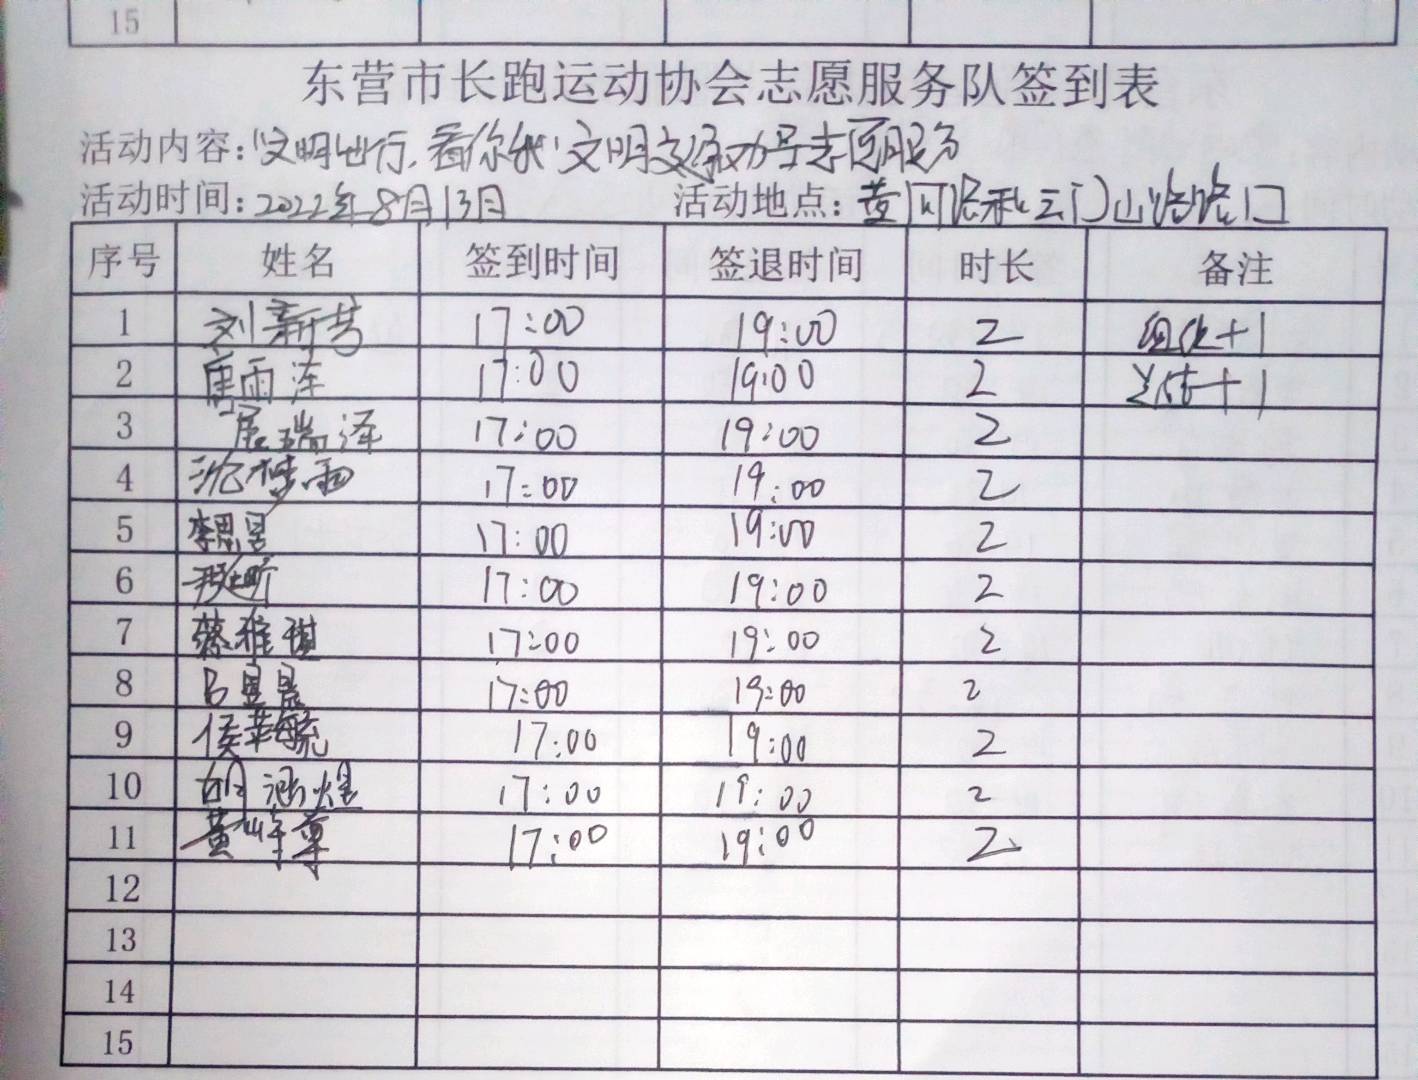 15
东营市长跑运动协会志愿服务队签到表
活动内容:"文明出行,看你我"文明交通劝导志愿服务
活动时间:2022年8月13日 活动地点:黄河路和云门山路路口
序号 姓名 签到时间 签退时间 时长 备注
1 刘新芳 17:00 19:00 2 组织+1
2 唐雨泽 17:00 19:00 2 总结+1
3 唐瑞泽 17:00 19:00 2
4 沈梦雨 17:00 19:00 2
5 李思昱 17:00 19:00 2
6 17:00 19:00 2
7 蔡雅琪 17:00 19:00 2
8 吕昱晨 17:00 19:00 2
9 侯莘毓 17:00 19:00 2
10 胡涵煜 17:00 19:00 2
11 黄峄尊 17:00 19:00 2
12
13
14
15